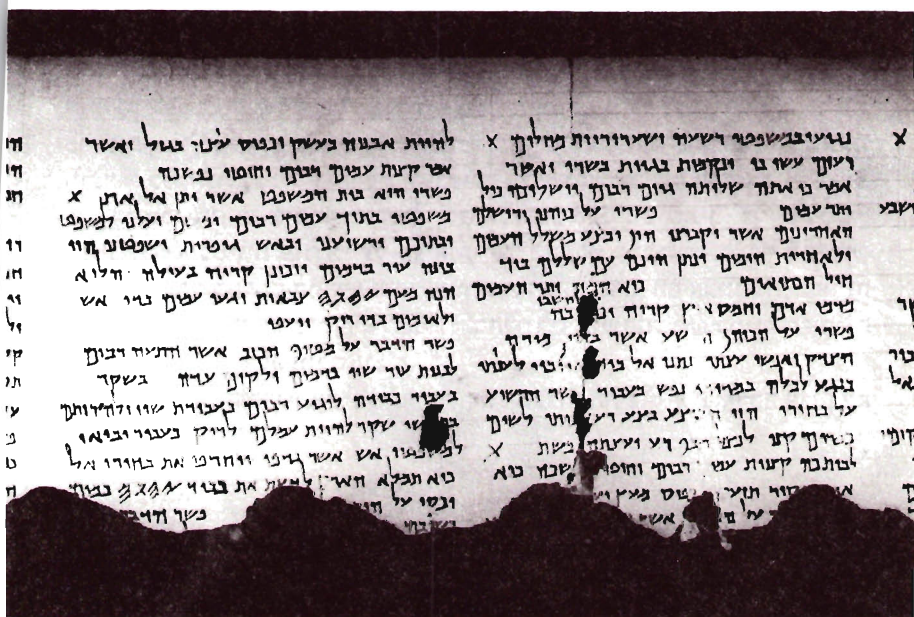 נגועו במשפטי רשעה ושערוריות מחלים X
רעים עשו בו ונקמות בגוית בשרו ואשר
אמר כי אתה שלותה גוים רבים וישלוכה כול
יתר עמים פשרו על כוהני ירושלם
האחרונים אשר יקבוצו הון ובצע משלל העמים
ולאחרית הימים ינתן הונם עם שללם ביד
חיל הכתיאים כיא המה יתר העמים
מדמי אדם וחמס קריה וכול בה
פשרו על הכוהן אשר מורה
הצדק ואנשי עצתו נתנו אל לענותו
בנגע לכלה נפש בעבור אשר הרשיע
על בחירו הוי הבוצע בצע רע לביתו לשום
במרום קנו לנצל מכף רע יעצתה בשת X
לביתכה קצוות עמים רבים וחוטי נפשכה כיא
מקיר תזעק וכפיס מעץ
על אשר
להיות אבניה בעשק וכפיס עיצה בגזל ואשר
אמר קצות עמים רבים וחוטי נפשכה
פשרו הוא בית המשפט אשר יתן אל את X
משפטו בתוך עמים רבים יעלנו למשפט
ובתוכם ירשיענו ובאש גופרית ישפטנו הוי
בונה עיר בדמים ויכונן קריה בעולה הלוא
הנה מעם 𐤉𐤄𐤅𐤄 צבאות יגעו עמים בדי אש
ולאומים בדי ריק ייעפו
פשר הדבר על מטיף הכזב אשר התעה רבים
לבנות עיר שוו בדמים ולקים עדה בשקר
בעבור כבודה לוגיע רבים בעבודת שוו ולהרותם
שקר להיות עמלם לריק בעבור יבואו
למשפטי אש אשר גדפו ויחרפו את בחירי אל
כיא תמלא הארץ לדעת את כבוד 𐤉𐤄𐤅𐤄 כמים
יכסו על הים פשר הדבר